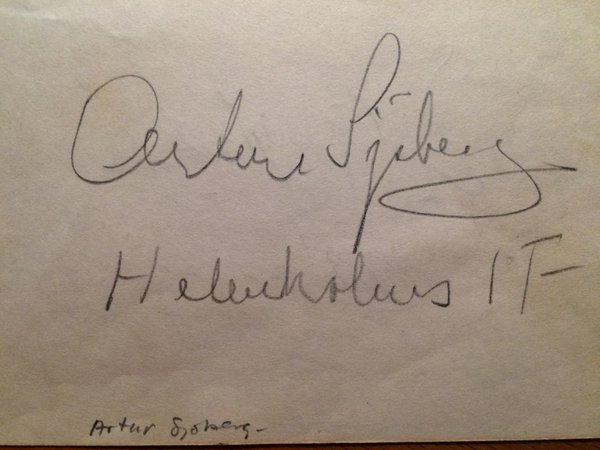 Artur Sjöberg
Helenholms IF
Artur Sjöberg